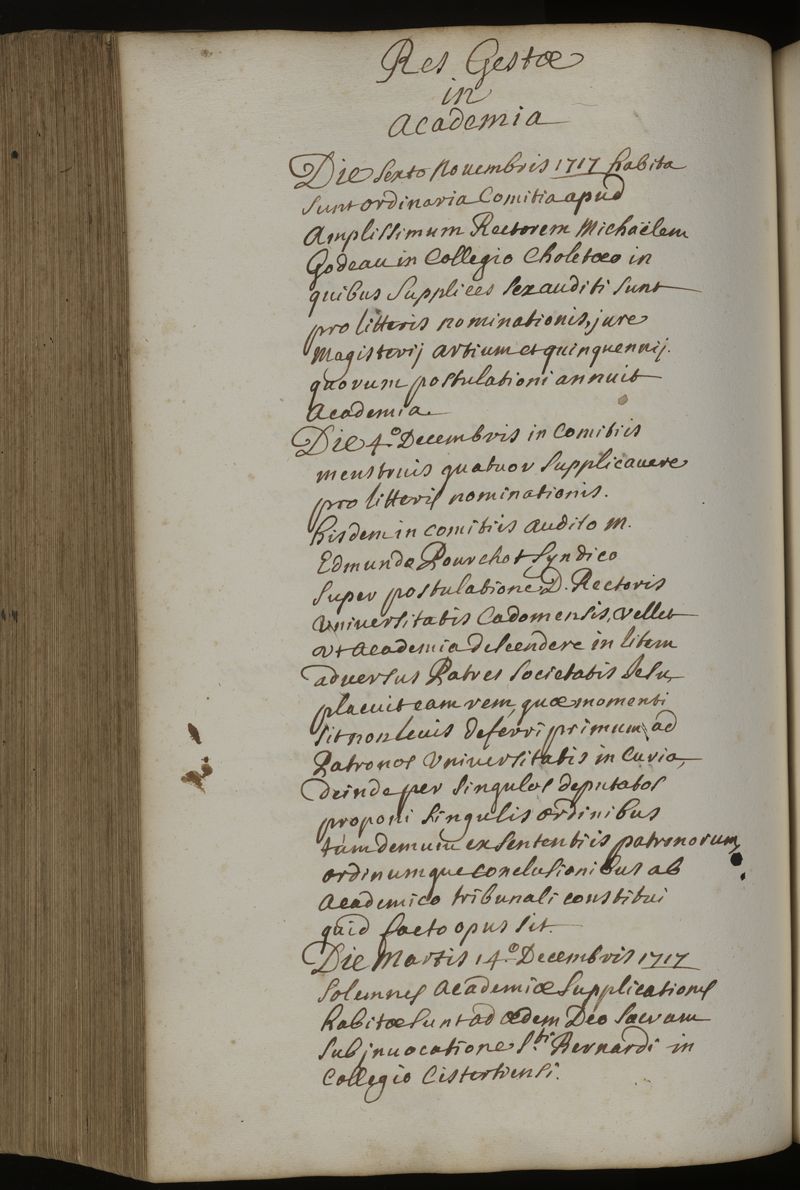 Res Gestæ
in
Academia
Die sexto Novembris 1717 habita
sunt ordinaria Comitia apud
Amplissimum Rectorem Michaëlem
Godeau in Collegio Choletæo in
quibus supplices sex auditi sunt
pro litteris nominationis, jure
Magisterij artium et quinquennij.
quorum postulationi annuit
Academia.
Die 4.º Decembris in Comitiis
menstruis quatuor supplicavere
pro litteris nominationis.
hisdem in comitiis audito m.
Edmundo Pourchot Syndico
super postulatione D. Rectoris
Universitatis Cadomensis, vellet
vt Academia descendere in litem
adversus Patres Societatis Jesu,
placuit eam rem, quæ momenti
sit non levis deferri primum ad
Patronos Vniversitatis in Curia,
deinde per singulos deputatos
proponi singulis ordinibus
tùm demum ex sententiis patronorum,
ordinumque conclusionibus ab
Academico tribunali constitui
quid facto opus sit.
Die Martis 14.º Decembris 1717
solemnes Academiæ supplicationes
habitæ sunt ad ædem Deo sacram
sub jnvocatione Sti Bernardi in
Collegio Cisterciensi.